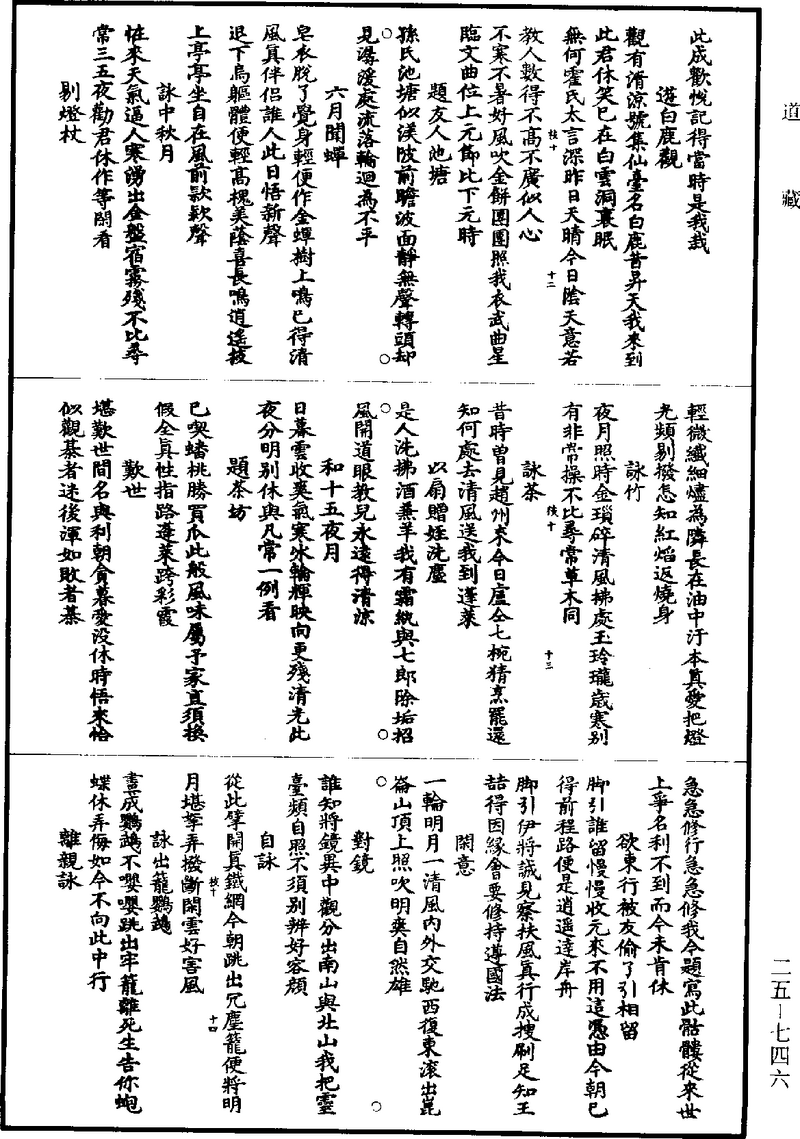 道藏
此成歡悅記得當時是我哉
遊白鹿觀
觀有清涼號集仙臺名白鹿昔昇天我來到
此君休笑已在白雲洞裏眠
無何霍氏太言深昨日天晴今日陰天意若
教人數得不高不廣似人心
不寒不暑好風吹金餅團團照我衣武曲星
臨文曲位上元節比下元時
題友人池塘
孫氏池塘似渼陂前瞻波面靜無聲轉頭却
見潺湲處流落輪迴為不平
六月聞蟬
皂衣脫了覺身輕便作金蟬樹上鳴已得清
風真伴侶誰人此日悟新聲
退下烏軀體便輕高槐美蔭喜長鳴逍遙枝
上亭亭坐自在風前款款聲
詠中秋月
恠來天氣逼人寒湧出金盤宿霧殘不比尋
常三五夜勸君休作等閑看
剔燈杖
輕微纖細爐為隣長在油中汙本真愛把燈
光頻剔撥怎知紅焰返燒身
詠竹
夜月照時金瑣碎清風拂處玉玲瓏歲寒別
有非常操不比尋常草木同
詠茶
昔時曾見趙州來今日盧仝七椀猜烹罷還
知何處去清風送我到蓬萊
以扇贈姪洗塵
是人洗拂酒兼羊我有霜紈與七郎除垢招
風開道眼教兒永遠得清涼
和十五夜月
日暮雲收爽氣寒冰輪輝映向更殘清光此
夜分明別休與凡常一例看
題茶坊
已喫蟠桃勝買瓜此般風味屬予家直須換
假全真性指路蓬萊跨彩霞
歎世
堪歎世間名與利朝貪暮愛沒休時悟來恰
似觀棊者迷後渾如敗者棊
急急修行急急修我今題寫此骷髏從來世
上爭名利不到而今未肯休
欲東行被友偷了引相留
脚引誰留慢慢收元來不用這憑由今朝已
得前程路便是逍遙達岸舟
脚引伊將誠見察扶風真行成搜刷足知王
喆得因緣會要修持遵國法
閑意
一輪明月一清風內外交馳西復東滾出崑
崙山頂上照吹明爽自然雄
對鏡
誰知將鏡異中觀分出南山與北山我把靈
臺頻自照不須別辨好容顏
自詠
從此擘開真鐵網今朝跳出冗塵籠便將明
月堪拏弄撥斷閑雲好害風
詠出籠鸚鵡
畫成鸚鵡不嚶嚶跳出牢籠離死生告你蚫
蝶休弄侮如今不向此中行
離親詠
二五－七四六